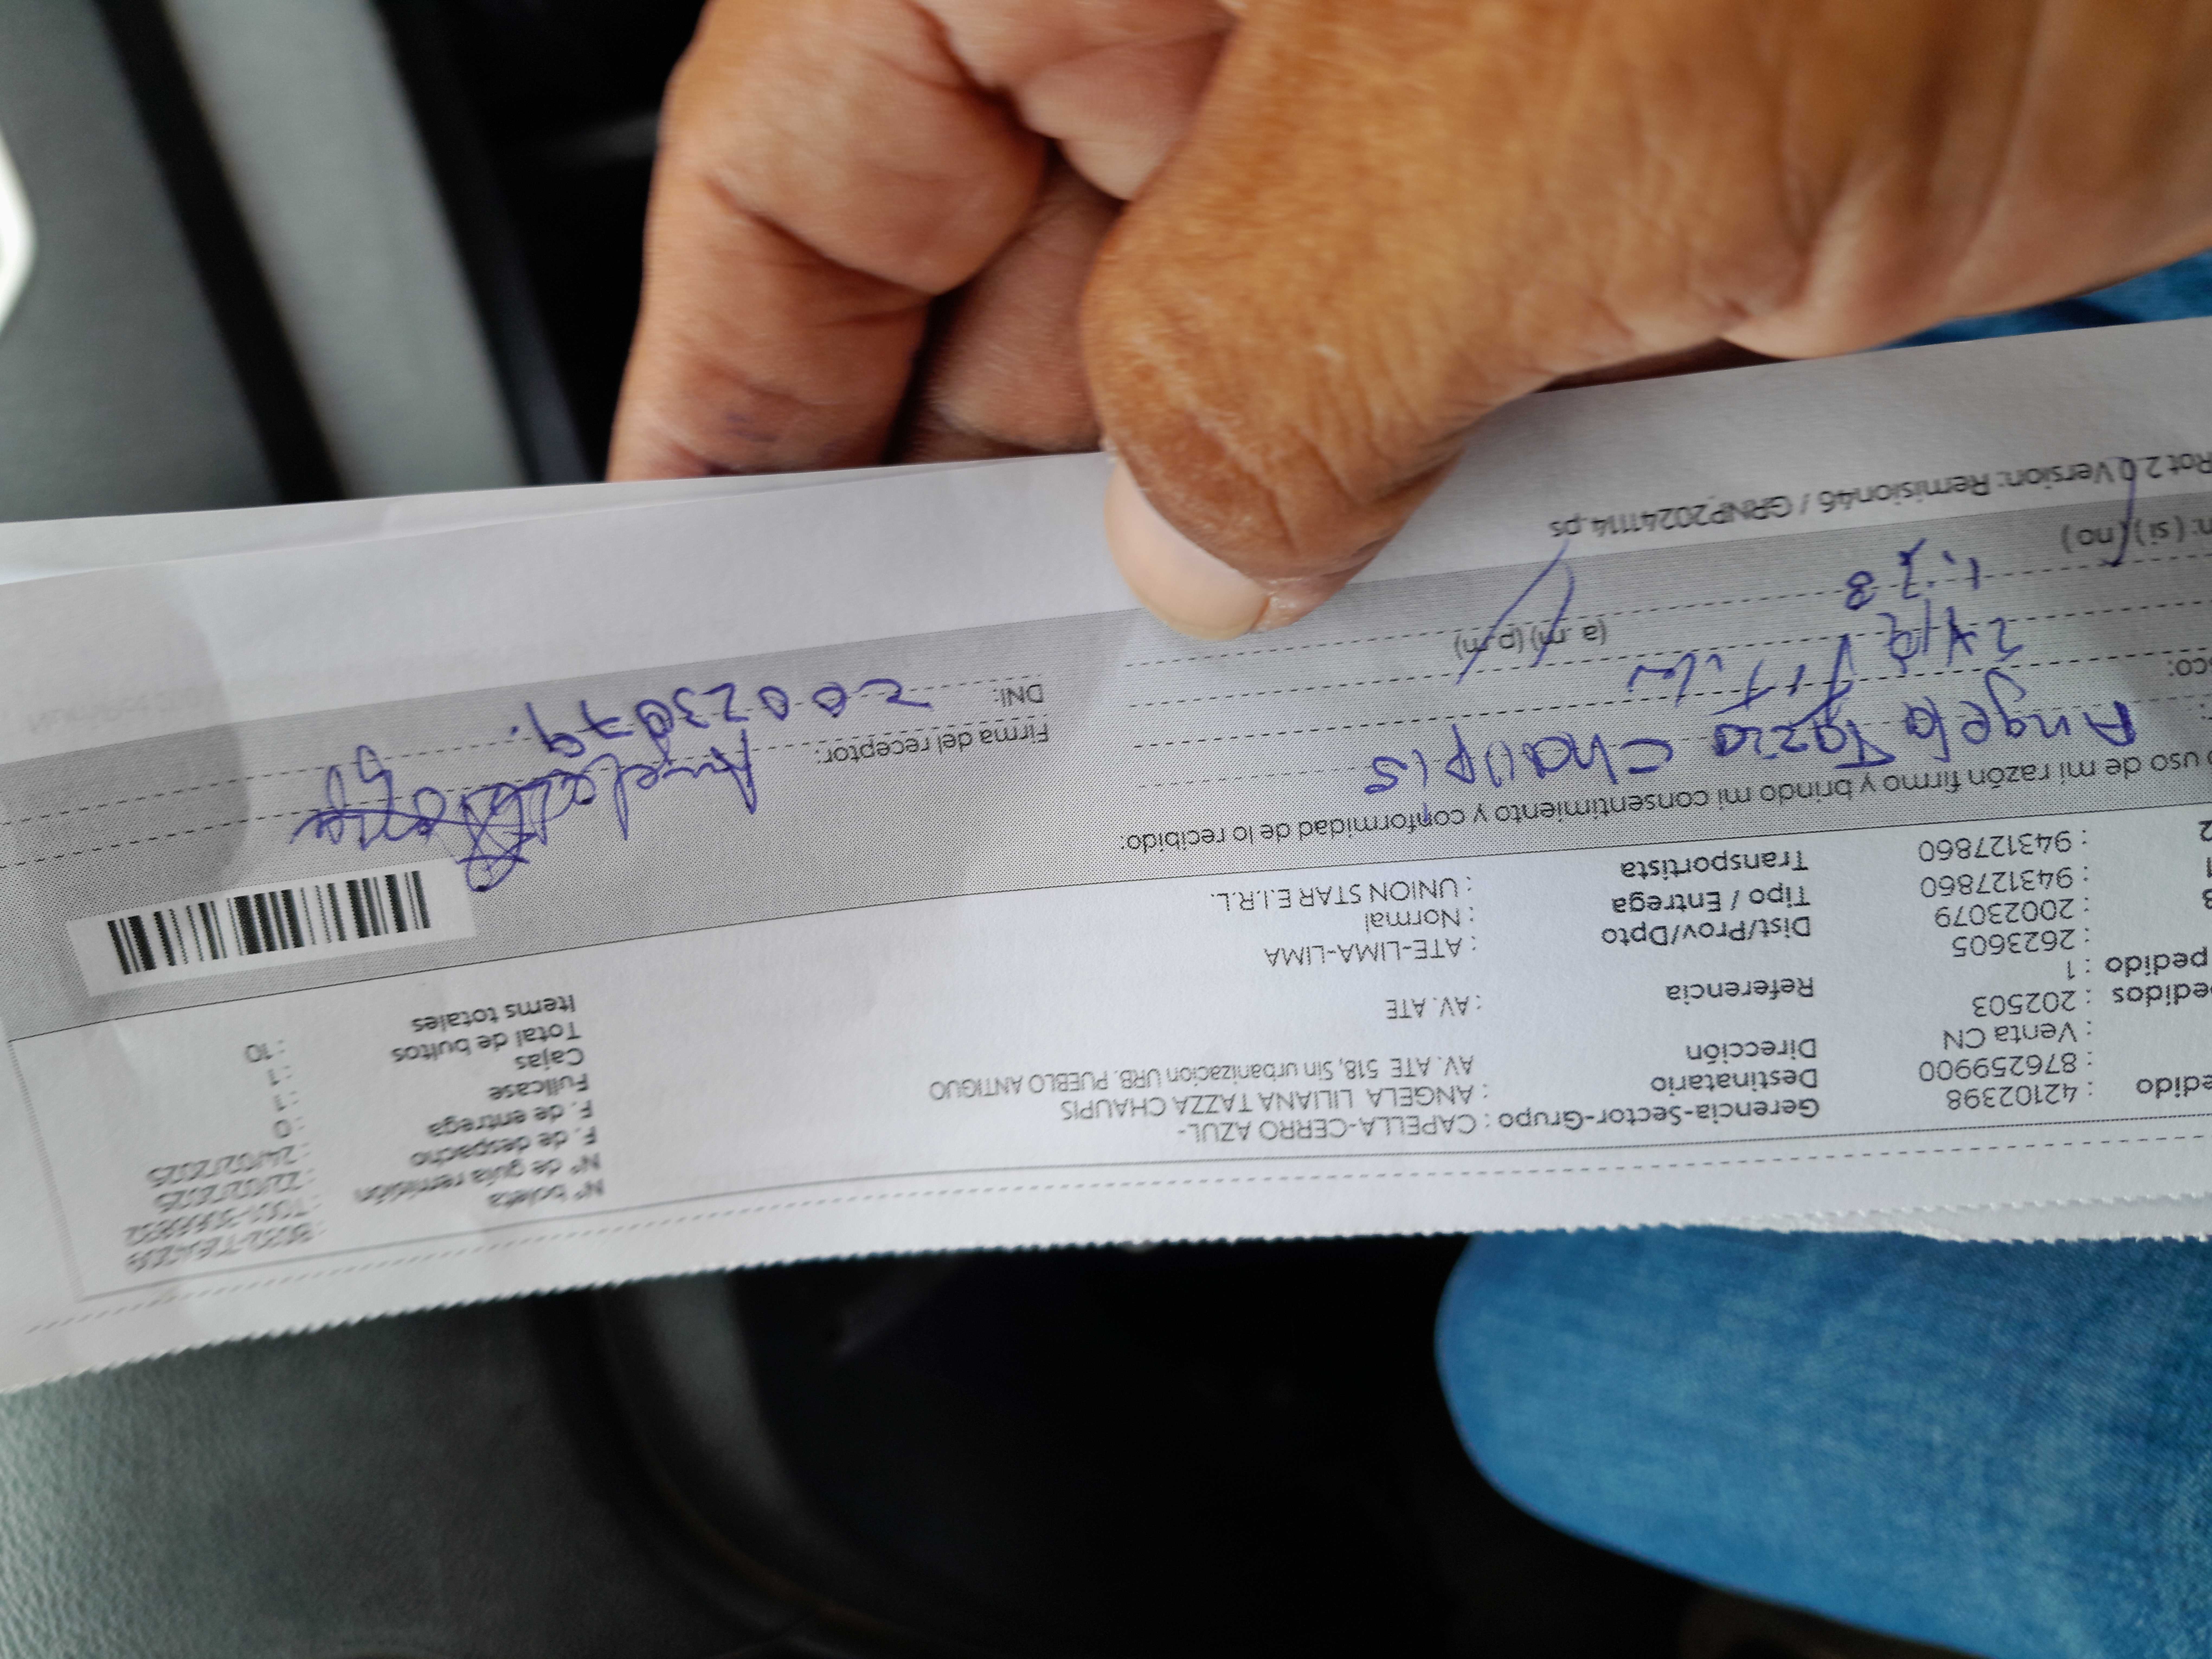 edido : 42102398 Gerencia-Sector-Grupo : CAPELLA-CERRO AZUL- N° boleta
: 876259900 Destinatario : ANGELA LILIANA TAZZA CHAUPIS N° de guía remisión
: Venta CN Dirección AV. ATE 518, Sin urbanizacion URB. PUEBLO ANTIGUO F. de despacho : 22/02/2025
edidos : 202503 F. de entrega : 24/02/2025
pedido : 1 Referencia : AV. ATE Fullcase : 0
: 2623605 Cajas : 1
: 20023079 Dist/Prov/Dpto : ATE-LIMA-LIMA Total de bultos : 1
: 943127860 Tipo / Entrega : Normal Items totales : 10
: 943127860 Transportista : UNION STAR E.I.R.L.
uso de mi razón firmo y brindo mi consentimiento y conformidad de lo recibido:
Angela Tazza Chaupis
Firma del receptor:
(a. m) (p. m) DNI: 20023079.
(si) (no)
Rot 2.0 Version: Remision46 / GRNP20241114.ps